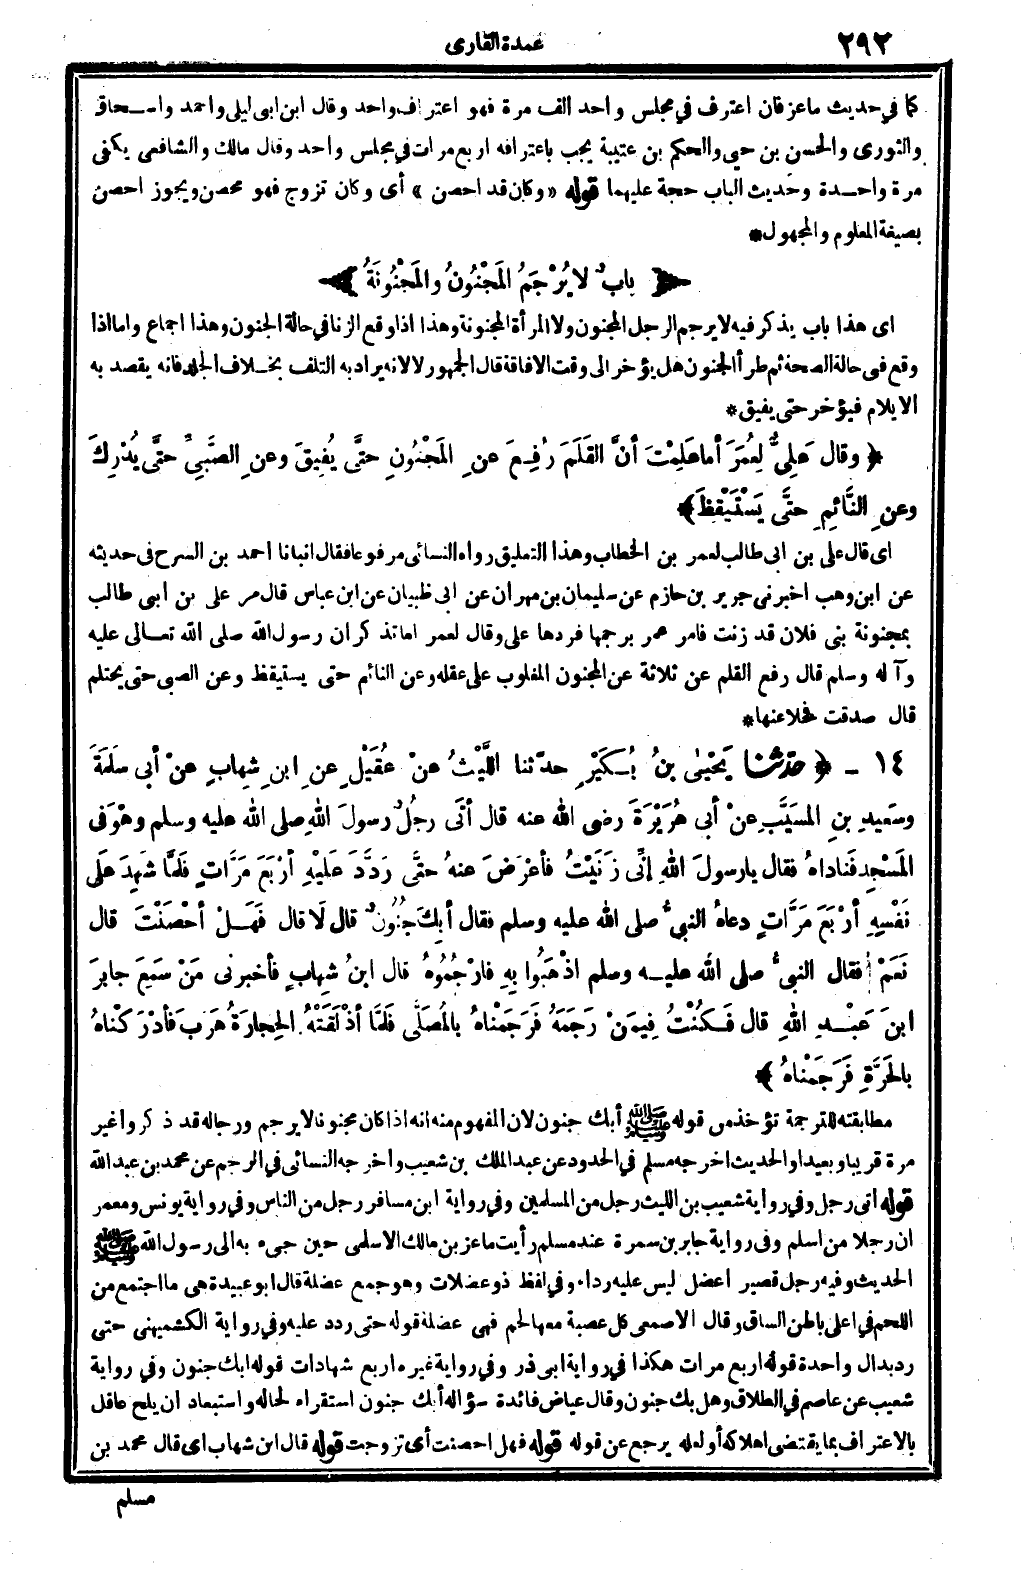 ٢٩٢
عمدة القارى
كما في حديث ماعز فان اعترف في مجلس واحد الف مرة فهو اعتراف واحد وقال ابن ابى ليلى واحمد واسـحاق
والثورى والحسن بن حيى والحكم بن عتيبة يجب باعترافه اربع مرات في مجلس واحد وقال مالك والشافعى يكفى
مرة واحـدة وحديث الباب حجة عليهما قوله «وكان قد احصن» أى وكان تزوج فهو محصن ويجوز احصن
بصيغة المعلوم والمجهول *
﴿ بابٌ لا يُرْجَمُ المَجْنُونُ والمَجْنُونَةُ ﴾
اى هذا باب يذكر فيه لا يرجم الرجل المجنون ولا المرأة المجنونة وهذا اذا وقع الزنا في حالة الجنون وهذا اجماع واما اذا
وقع فى حالة الصحة ثم طرأ الجنون هل يؤخر الى وقت الافاقة قال الجمهور لا لانه يراد به التلف بخـلاف الجلد فانه يقصد به
الايلام فيؤخر حتى يفيق *
﴿ وقال عَلِىٌّ لِعُمَرَ أما علِمْتَ أنَّ القَلَمَ رُفِـعَ عنِ المَجْنُونِ حتَّى يُفِيقَ وعنِ الصَّبِىِّ حتَّى يُدْرِكَ
وعنِ النَّائِمِ حتَّى يَسْتَيْقِظَ ﴾
اى قال على بن ابى طالب لعمر بن الخطاب وهذا التعليق رواه النسائى مرفوعا فقال انبانا احمد بن السرح فى حديثه
عن ابن وهب اخبرنى جرير بن حازم عن سليمان بن مهران عن ابى ظبيان عن ابن عباس قال مر على بن ابى طالب
بمجنونة بنى فلان قد زنت فامر عمر برجمها فردها على وقال لعمر اما تذكر ان رسول الله صلى الله تعـالى عليه
وآله وسلم قال رفع القلم عن ثلاثة عن المجنون المغلوب على عقله وعن النائم حتى يستيقظ وعن الصبى حتى يحتلم
قال صدقت فخلا عنها *
١٤ - ﴿ حدّثنا يَحْيَى بنُ بُـكَيْرٍ حدّثنا اللَّيْثُ عنْ عُقَيْلٍ عنِ ابنِ شِهابٍ عنْ أبى سلَمَةَ
وسَعِيدِ بنِ المسَيَّبِ عنْ أبى هُرَيْرَةَ رضى الله عنه قال أتَى رجُلٌ رسولَ اللهِ صلى الله عليه وسلم وهْوَ فى
المَسْجِدِ فَناداهُ فقال يارسولَ اللهِ إنِّى زَنَيْتُ فأعْرَضَ عنهُ حتَّى رَدَّدَ عَلَيْهِ أرْبَعَ مَرَّاتٍ فَلمَّا شَهِدَ علَى
نَفْسِهِ أرْبَعَ مَرَّاتٍ دعاهُ النبىُّ صلى الله عليه وسلم فقال أبِكَ جُنُونٌ قال لَا قال فَهَـلْ أحْصَنْتَ قال
نَعَمْ فقال النبىُّ صلى الله عليـه وسلم اذْهَبُوا بِهِ فارْجُمُوهُ قال ابنُ شِهابٍ فأخبرنى مَنْ سَمِعَ جابرَ
ابنَ عَبْـدِ اللهِ قال فَـكُنْتُ فِيمَنْ رَجَمَهُ فَرَجَمْناهُ بالمُصَلَّى فَلَمَّا أذْلَقَتْهُ الحِجارَةُ هَرَبَ فأدْرَكْناهُ
بالحَرَّةِ فَرَجَمْناهُ ﴾
مطابقته للترجمة تؤخذ من قوله ﷺ أبك جنون لان المفهوم منه انه اذا كان مجنونا لا يرجم ورجاله قد ذكروا غير
مرة قريبا وبعيدا والحديث اخرجه مسلم في الحدود عن عبد الملك بن شعيب واخرجه النسائى في الرجم عن محمد بن عبد الله
قوله أتى رجل وفي رواية شعيب بن الليث رجل من المسلمين وفي رواية ابن مسافر رجل من الناس وفي رواية يونس ومعمر
ان رجلا من اسلم وفى رواية جابر بن سمرة عند مسلم رأيت ماعز بن مالك الاسلمى حين جىء به الى رسول الله ﷺ
الحديث وفيه رجل قصير اعضل ليس عليه رداء وفي لفظ ذو عضلات وهو جمع عضلة قال ابو عبيدة هى ما اجتمع من
اللحم في اعلى باطن الساق وقال الاصمعى كل عصبة معها لحم فهى عضلة قوله حتى ردد عليه وفي رواية الكشميهنى حتى
رد بدال واحدة قوله اربع مرات هكذا في رواية ابى ذر وفي رواية غيره اربع شهادات قوله ابك جنون وفي رواية
شعيب عن عاصم في الطلاق وهل بك جنون وقال عياض فائدة سؤاله أبك جنون استقراء لحاله واستبعاد ان يلح عاقل
بالاعتراف بما يقتضى اهلاكه أو لعله يرجع عن قوله قوله فهل احصنت أى تزوجت قوله قال ابن شهاب اى قال محمد بن
مسلم